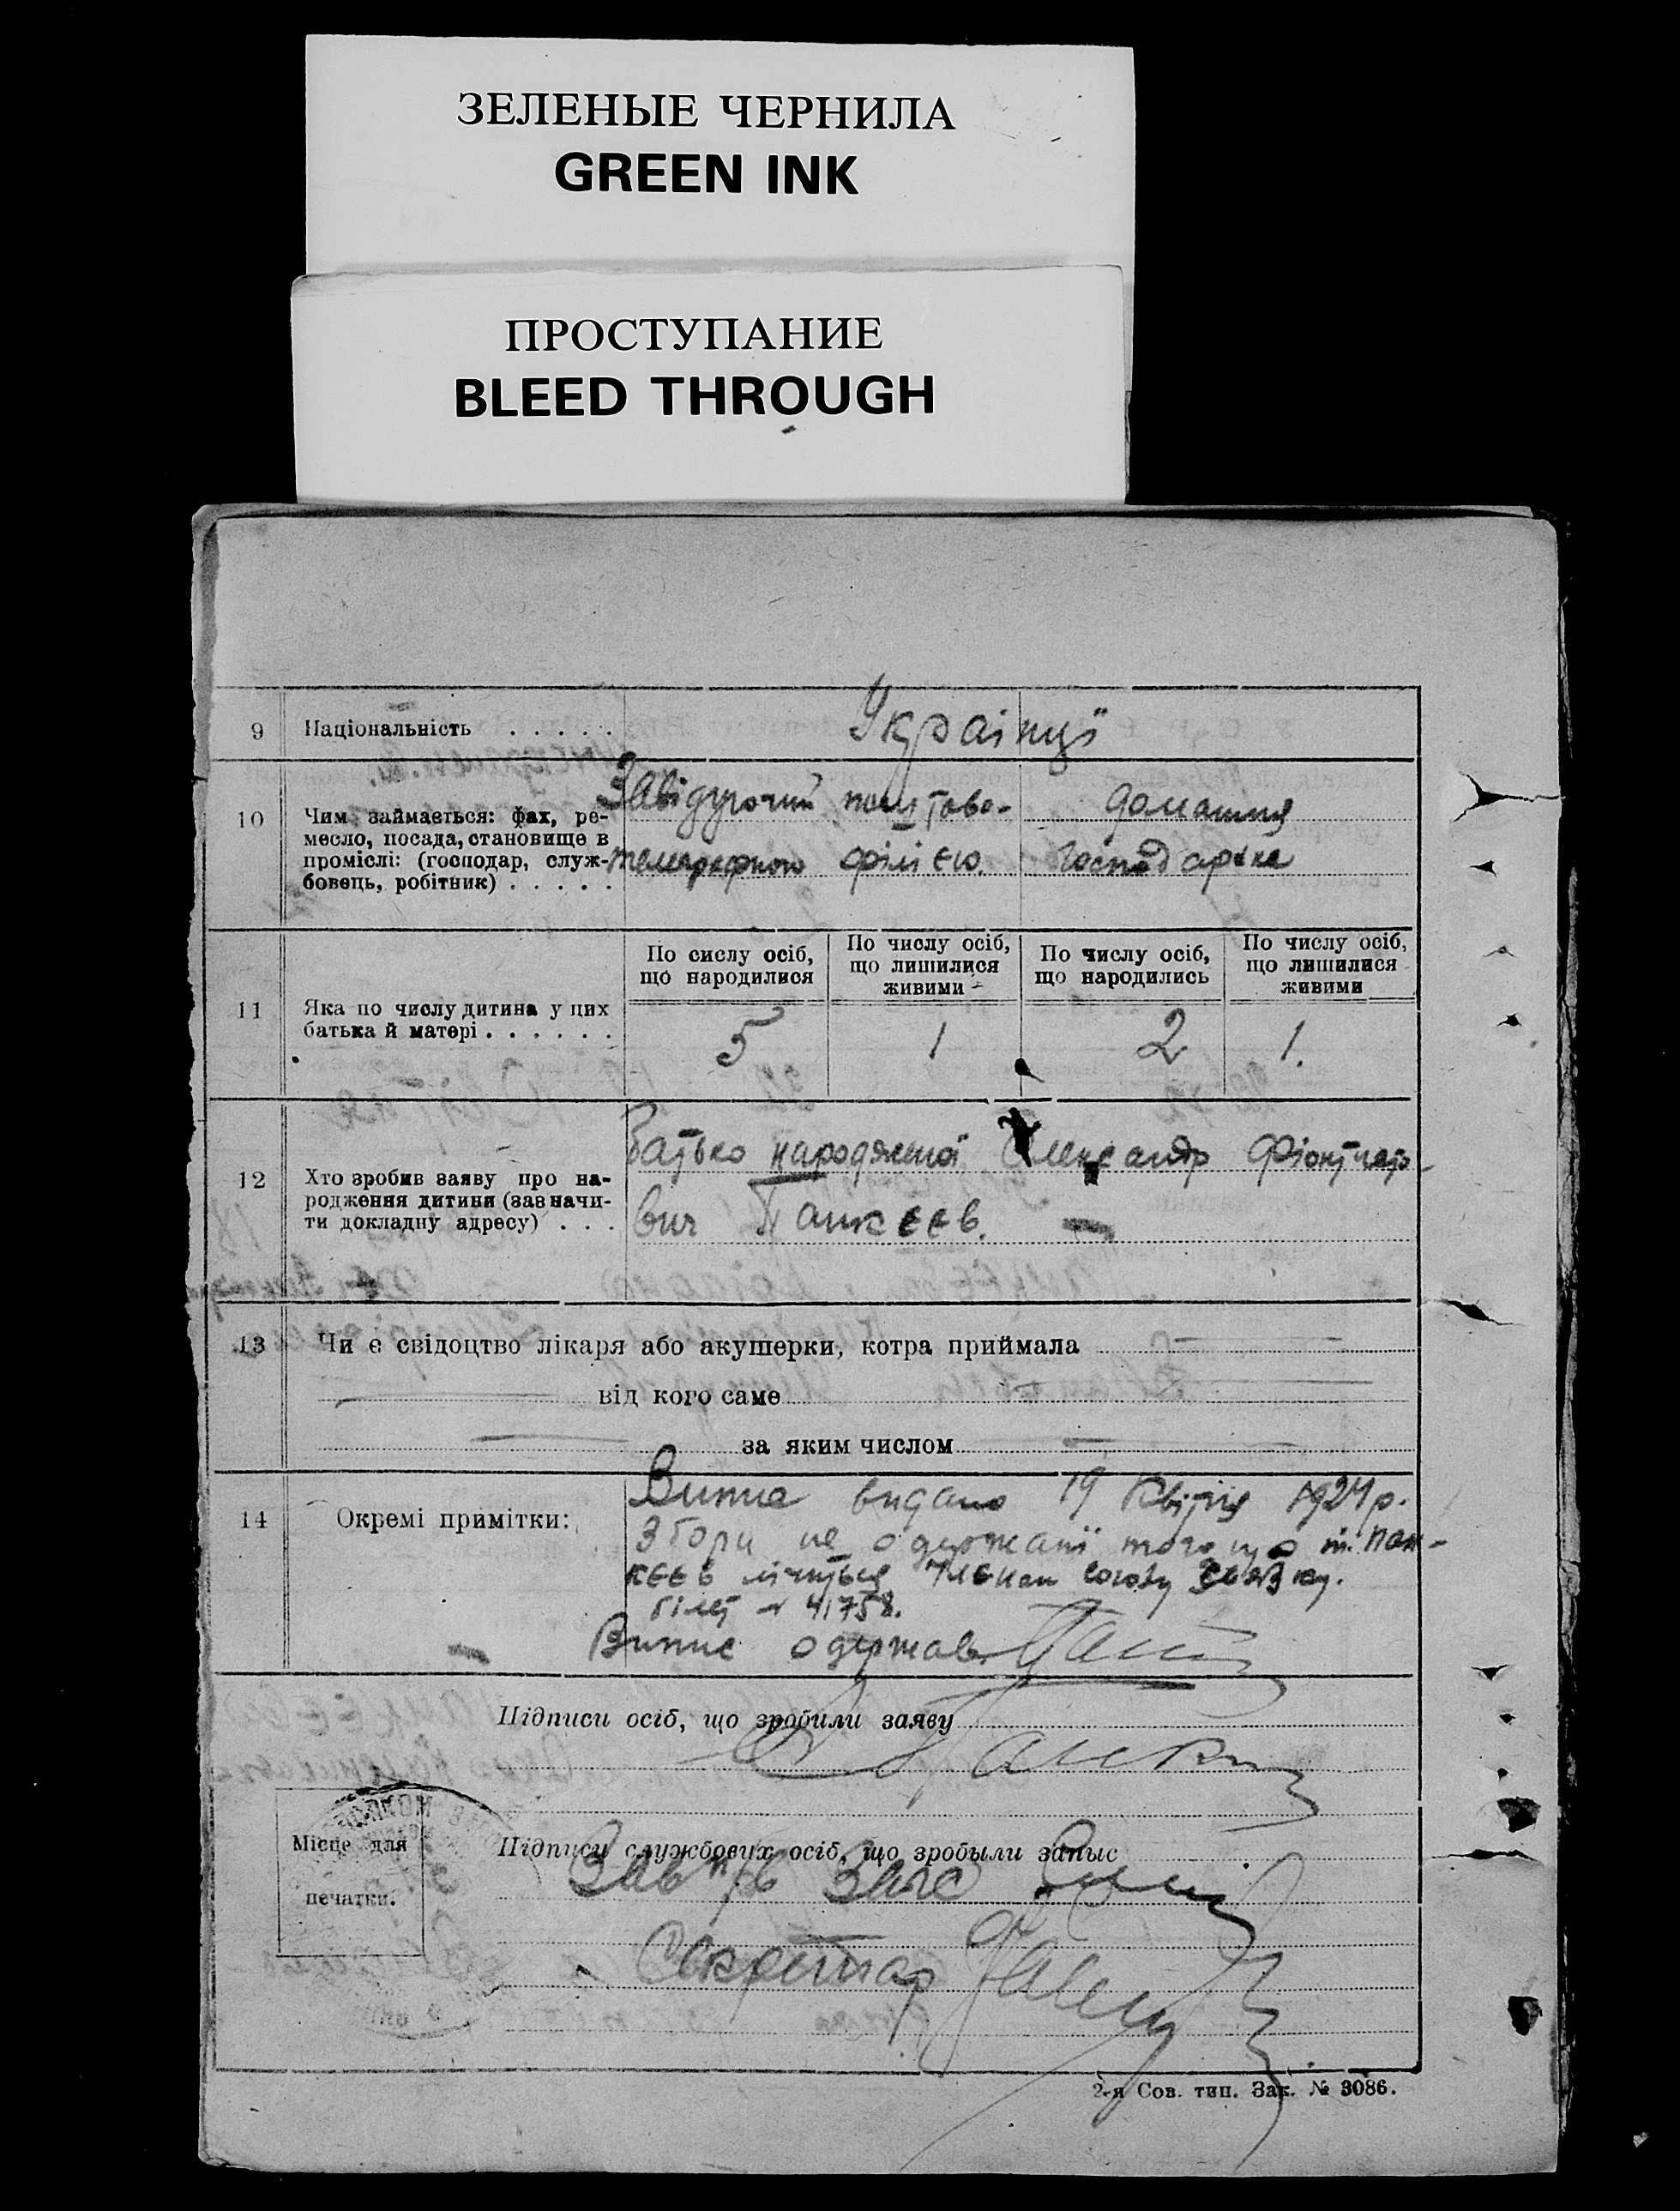 ЗЕЛЕНЫЕ ЧЕРНИЛА
GREEN INK
ПРОСТУПАНИЕ
BLEED THROUGH
9 Національність . . . . . Українці
10 Чим займається: фах, ре-
месло, посада, становище в
проміслі: (господар, служ-
бовець, робітник) . . . . .
Завідуючий поштово-
телеграфною філією.
домашня
господарка
По сислу осіб,
що народилися
По числу осіб,
що лишилися
живими
По числу осіб,
що народились
По числу осіб,
що лишилися
живими
11 Яка по числу дитина у цих
батька й матері . . . . . .
5 1 2 1.
12 Хто зробив заяву про на-
родження дитини (зазначи-
ти докладну адресу) . . .
Батько народженої Олександр
вич Панкеев.
13 Чи є свідоцтво лікаря або акушерки, котра приймала
від кого саме
за яким числом
14 Окремі примітки:
Випис видано 19 Квітня 1924 р.
Збори не одержані того що т. Пан-
кеев лічиться членом союзу Звязку.
білет № 41758.
Випис одержав
Підписи осіб, що зробили заяву
Місце для
печатки.
Підписи службових осіб, що зробыли запыс
Зав ЗАГС
Секретар
2-я Сов. тип. Зак. № 3086.